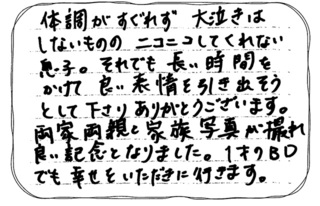 体調がすぐれず 大泣きは
しないものの ニコニコしてくれない
息子。それでも 長い時間を
かけて 良い表情を引き出そう
として下さり ありがとうございます。
両家両親と家族写真が撮れ
良い記念となりました。1才のBD
でも幸せをいただきに行きます。